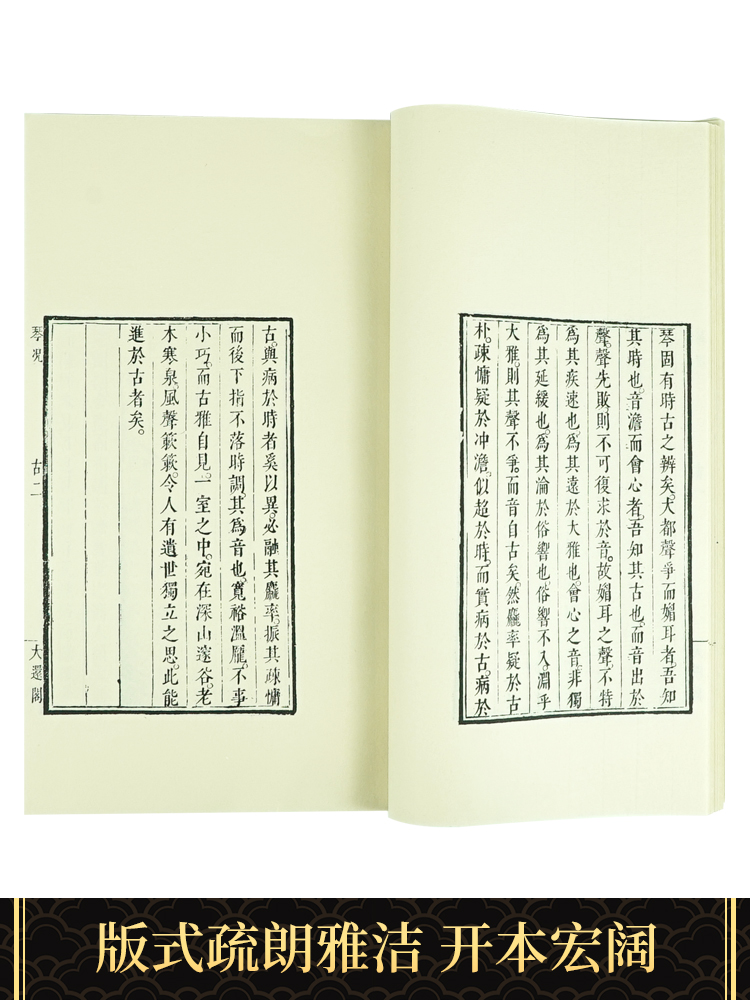 琴固有時古之辨矣。大都聲爭而媚耳者。吾知
其時也。音澹而會心者。吾知其古也。而音出於
聲。聲先敗。則不可復求於音。故媚耳之聲。不特
爲其疾速也。爲其遠於大雅也。會心之音。非獨
爲其延緩也。爲其淪於俗響也。俗響不入。淵乎
大雅。則其聲不爭。而音自古矣。然麤率疑於古
朴。疎慵疑於冲澹。似超於時。而實病於古。病於
古。與病於時者奚以異。必融其麤率。振其疎慵
而後下指不落時調。其爲音也。寬裕溫龐。不事
小巧。而古雅自見。一室之中。宛在深山邃谷。老
木寒泉。風聲簌簌。令人有遺世獨立之思。此能
進於古者矣。
琴况 古二 大還閣
版式疏朗雅洁 开本宏阔